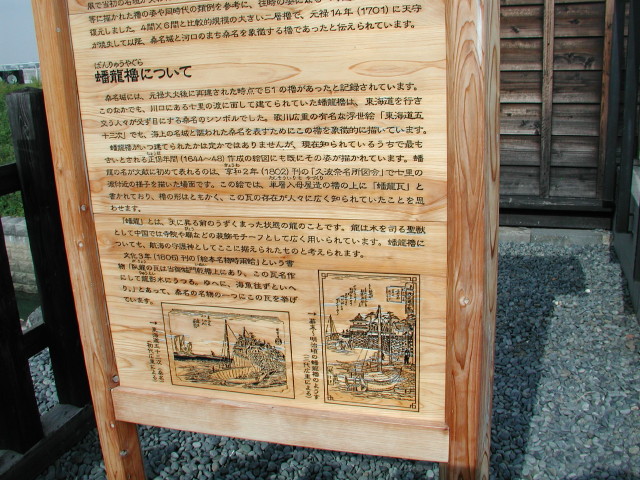 等に描かれた櫓の姿や同時代の類例を参考に、往時の姿に
復元しました。4間×6間と比較的規模の大きい二層櫓で、元禄14年(1701)に天守
が焼失して以降、桑名城と河口のまち桑名を象徴する櫓であったと伝えられます。
ばんりゅうやぐら
蟠龍櫓について
桑名城には、元禄大火後に再建された時点で51の櫓があったと記録されています。
このなかでも、川口にある七里の渡に面して建てられていた蟠龍櫓は、東海道を行き
交う人々が必ず目にする桑名のシンボルでした。歌川広重の有名な浮世絵「東海道五
十三次」でも、海上の名城と謳われた桑名を表すためにこの櫓を象徴的に描いています。
蟠龍櫓がいつ建てられたかは定かではありませんが、現在知られているうちで最も
古いとされる正保年間(1644〜48)作成の絵図にも既にその姿が描かれています。蟠
龍の名が文献に初めて表れるのは、享和2年(1802)刊の「久波奈名所図会」で七里の
渡付近の様子を描いた場面です。この絵では、単層入母屋造の櫓の上に「蟠龍瓦」と
書かれており、櫓の形はともかく、この瓦の存在が人々に広く知られていたことを思
わせます。
「蟠龍」とは、天に昇る前のうずくまった状態の龍のことです。龍は水を司る聖獣
として中国では寺院や廟などの装飾モチーフとして広く用いられています。蟠龍櫓に
ついても、航海の守護神としてここに据えられたものと考えられます。
文化3年(1806)刊の「絵本名物時雨蛤」という書
物
にして龍影水にうつる。ゆへに、海魚往ずといへ
り。」とあって、桑名の名物の一つにこの瓦を挙げ
ています。